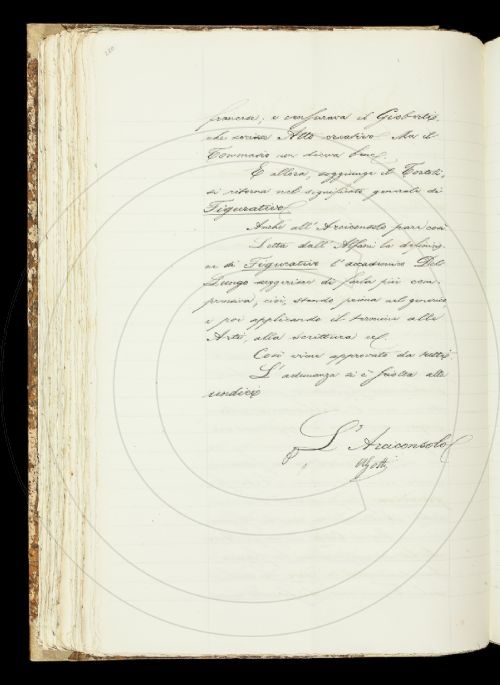 francese; e censurava il Gioberti
che scrisse Atto creativo. Ma il
Tommaseo non diceva bene.
E allora, soggiunge il Tortoli,
si ritorna nel significato generale di
Figurativo.
Anche all'Arciconsolo pare così
Letta dall'Alfani la definizio-
ne di Figurativo l'accademico Del
Lungo suggerisce di farla più com-
prensiva, cioè, stando prima nel generico
e poi applicando il termine alle
Arti, alla scrittura ec.
Così viene approvato da tutti.
L'adunanza si è sciolta alle
undici
L'Arciconsolo